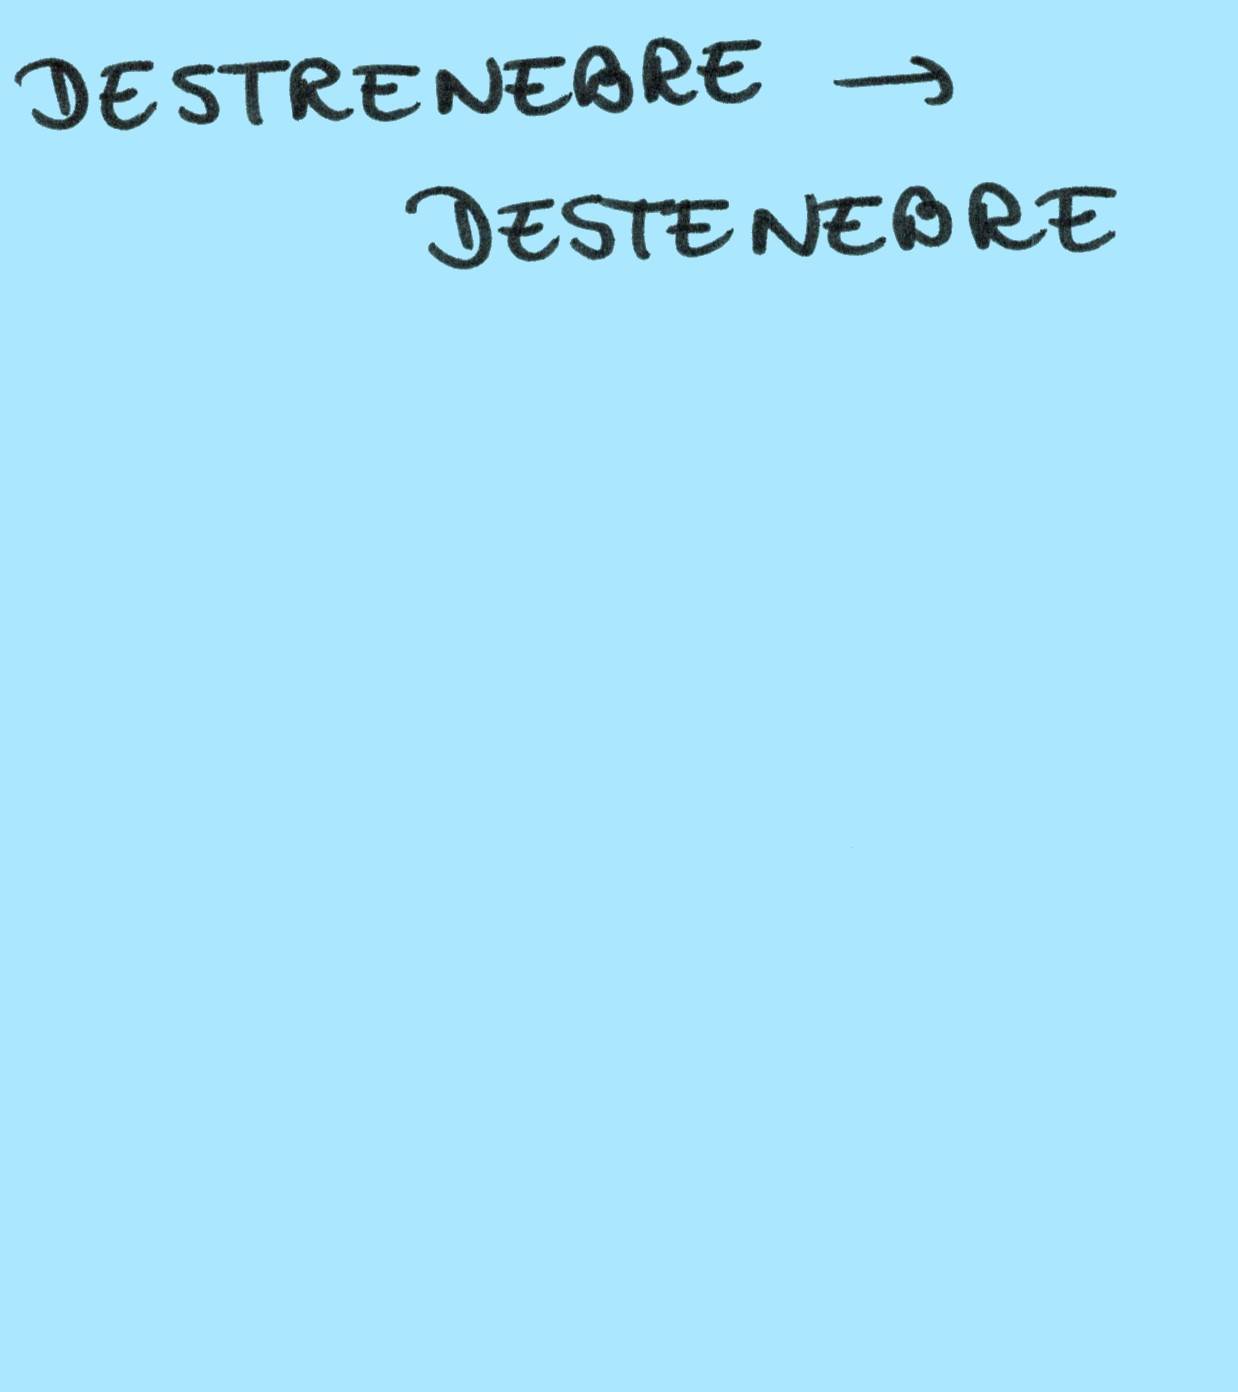 DESTRENEBRE →
DESTENEBRE